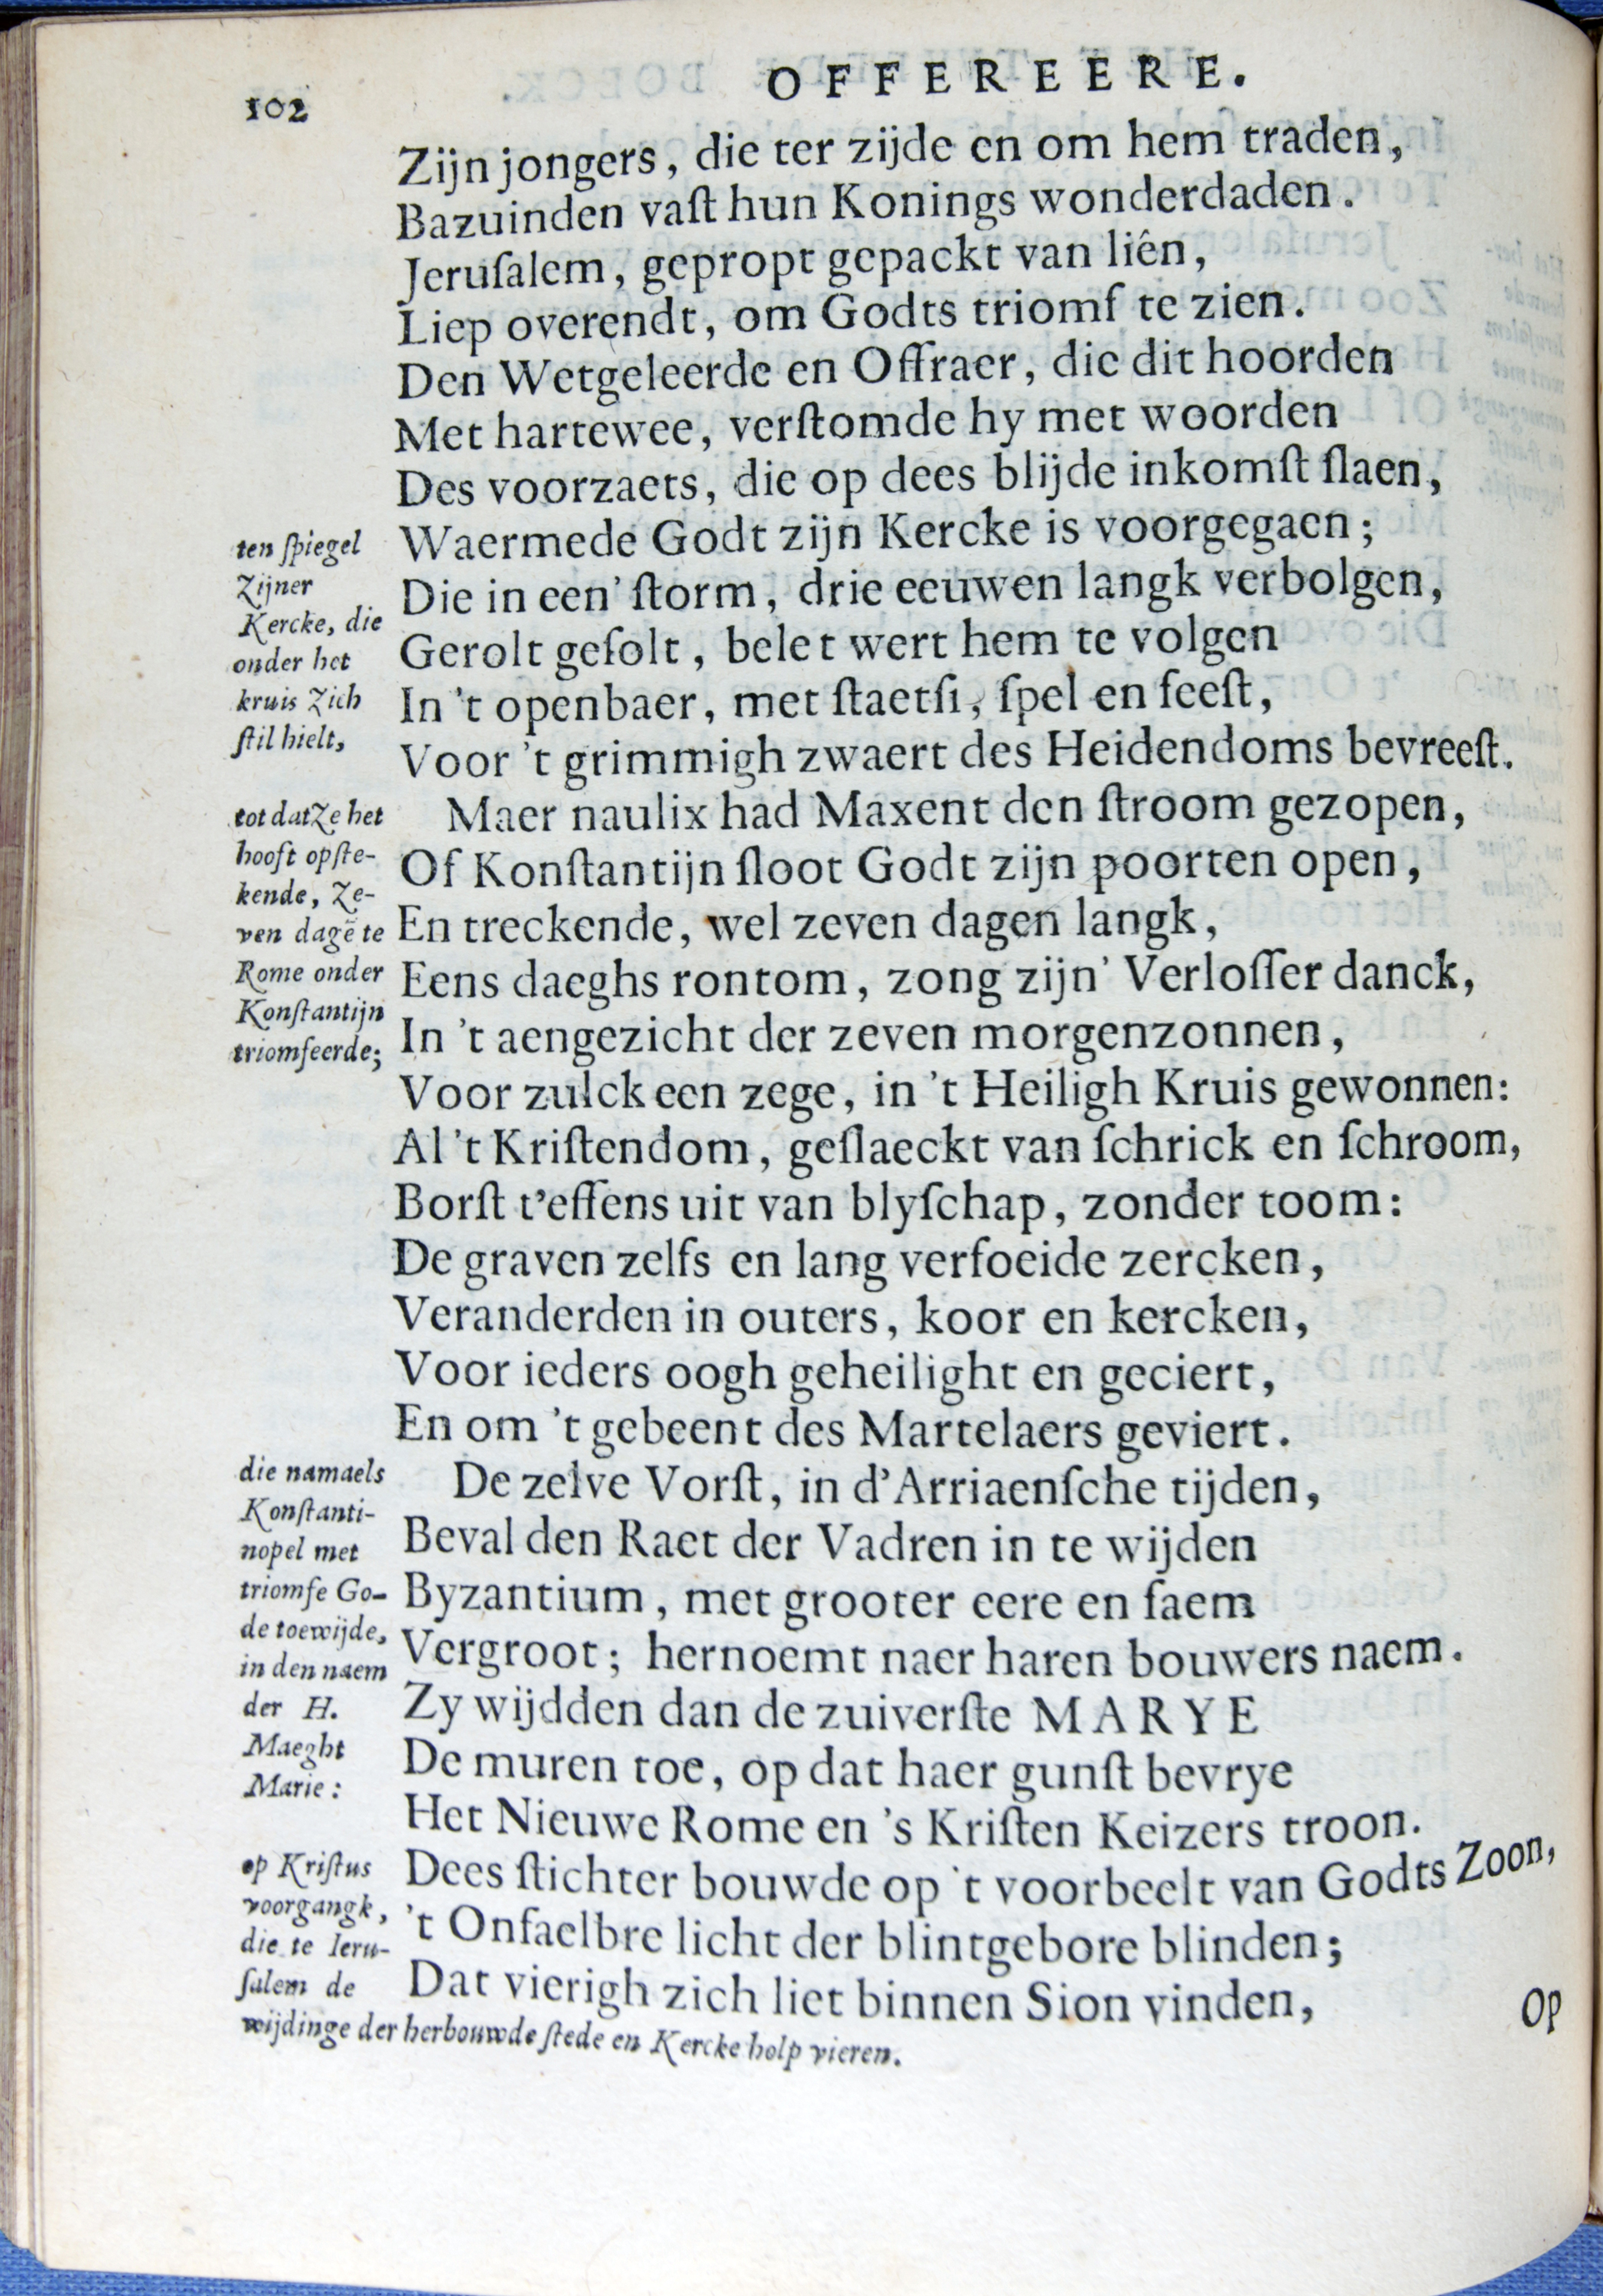 102
OFFEREERE.
Zijn jongers, die ter zijde en om hem traden,
Bazuinden vaſt hun Konings wonderdaden.
Jeruſalem, gepropt gepackt van liên,
Liep overendt, om Godts triomf te zien.
Den Wetgeleerde en Offraer, die dit hoorden
Met hartewee, verſtomde hy met woorden
Des voorzaets, die op dees blijde inkomſt ſlaen,
Waermede Godt zijn Kercke is voorgegaen;
Die in een' ſtorm, drie eeuwen langk verbolgen,
Gerolt geſolt, belet wert hem te volgen
In 't openbaer, met ſtaetſi, ſpel en feeſt,
Voor 't grimmigh zwaert des Heidendoms bevreeſt.
ten ſpiegel
Zijner
Kercke, die
onder het
kruis Zich
ſtil hielt,
Maer naulix had Maxent den ſtroom gezopen,
Of Konſtantijn ſloot Godt zijn poorten open,
En treckende, wel zeven dagen langk,
Eens daeghs rontom, zong zijn' Verloſſer danck,
In 't aengezicht der zeven morgenzonnen,
Voor zulck een zege, in 't Heiligh Kruis gewonnen:
Al 't Kriſtendom, geſlaeckt van ſchrick en ſchroom,
Borſt t'effens uit van blyſchap, zonder toom:
De graven zelfs en lang verfoeide zercken,
Veranderden in outers, koor en kercken,
Voor ieders oogh geheilight en geciert,
En om 't gebeent des Martelaers geviert.
tot datZe het
hooft opſte-
kende, Ze-
ven dagē te
Rome onder
Konſtantijn
triomfeerde;
De zelve Vorſt, in d'Arriaenſche tijden,
Beval den Raet der Vadren in te wijden
Byzantium, met grooter eere en faem
Vergroot; hernoemt naer haren bouwers naem.
Zy wijdden dan de zuiverſte MARYE
De muren toe, op dat haer gunſt bevrye
Het Nieuwe Rome en 's Kriſten Keizers troon.
Dees ſtichter bouwde op 't voorbeelt van Godts Zoon,
't Onfaelbre licht der blintgebore blinden;
Dat vierigh zich liet binnen Sion vinden,
die namaels
Konſtanti-
nopel met
triomfe Go-
de toewijde,
in den naem
der H.
Maeght
Marie:
op Kriſtus
voorgangk,
die te Ieru-
ſalem de
wijdinge der herbouwde ſtede en Kercke holp vieren.
Op